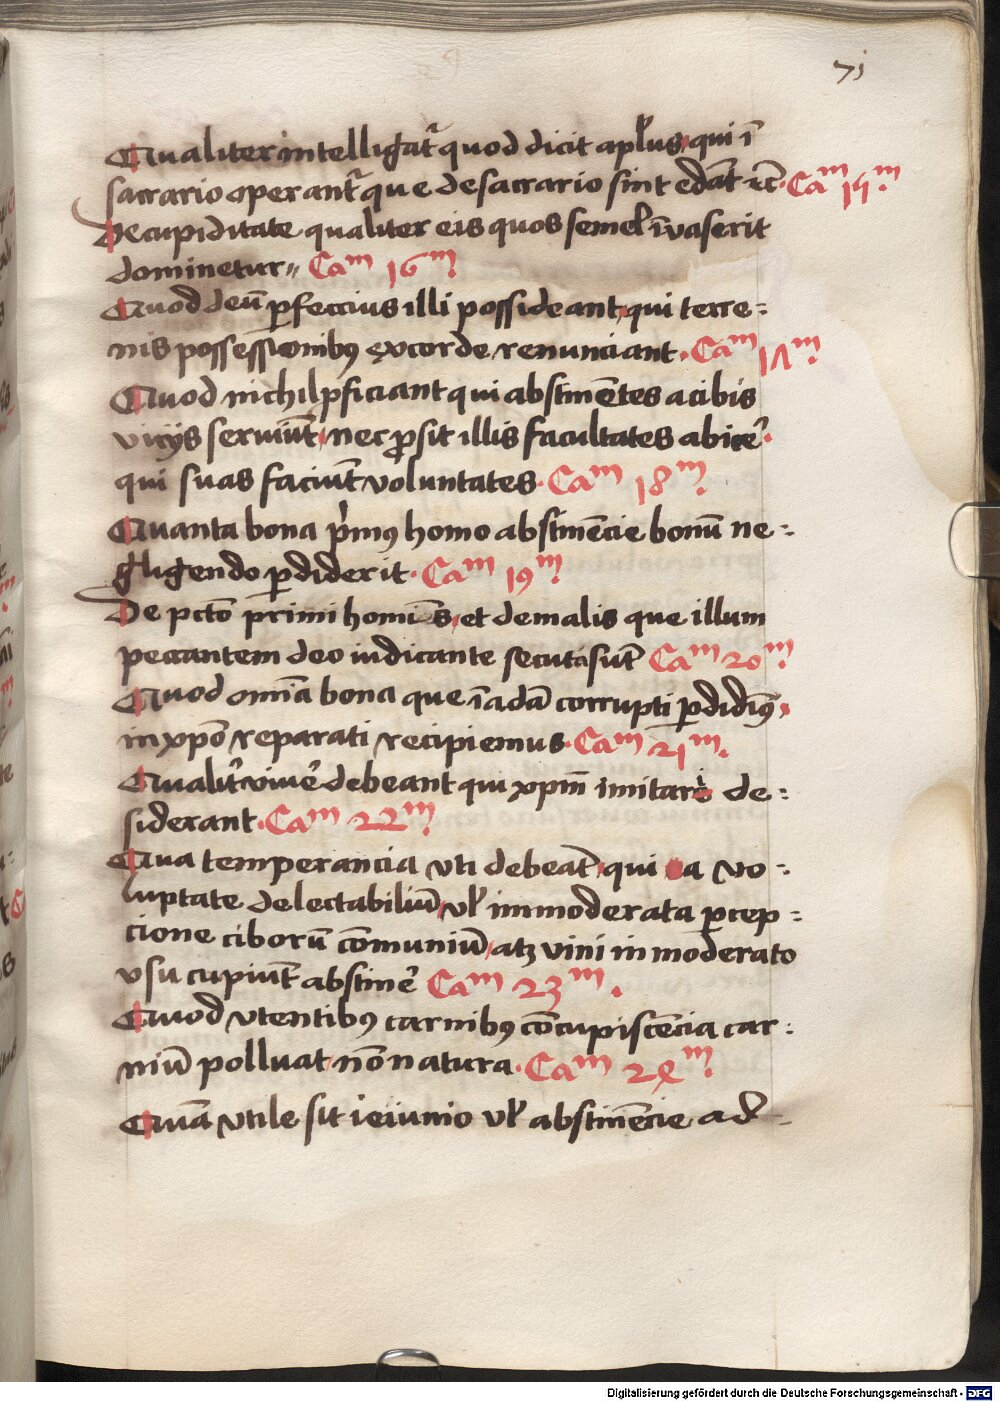 71
Qualiter intelligat̄ quod dicit apl̄us qui ī
sacrario operant̄ que de sacrario sint edāt ⁊c̄. Cam 15m.
De cupiditate qualiter eis quos semel īvaserit
dominetur〃 Cam 16m.
Quod deū ꝑfeccius illi possideant, qui terre=
nis possessionibꝯ ex corde renunciant. Cam 17m.
Quod nichil ꝓficiant qui abstinētes a cibis
vicijs serviūt, nec ꝓsit illis facultates abicere̛.
qui suas faciūt voluntates. Cam 18m.
Quanta bona p̄mꝯ homo abstinēcie bonū ne=
gligendo ꝑdiderit. Cam 19m.
De pctō primi hominis, et de malis que illum
peccantem deo iudicante secuta sūt Cam 20m.
Quod om̄ia bona que ī adā corrupti ꝑdidimꝯ,
in xp̄o reparati recipiemus. Cam 21m.
Qualit̄ viver̄ debeant qui xp̄m imitari de=
siderant. Cam 22m.
Qua temperancia vti debeāt, qui a vo=
luptate delectabiliū, vl̄ immoderata ꝑcep=
cione ciborū cōmuniū, atꝫ vini inmoderato
vsu cupiūt abstiner̄ Cam 23m.
Quod vtentibꝯ carnibꝯ cōcupiscēcia car=
niū polluat, nō natura. Cam 24m.
Quā vtile sit ieiunio vl̄ abstinēcie ad=
Digitalisierung gefördert durch die Deutsche Forschungsgemeinschaft - DFG